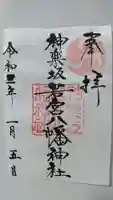 奉拝
神楽坂若宮八幡神社
令和二年一月五日